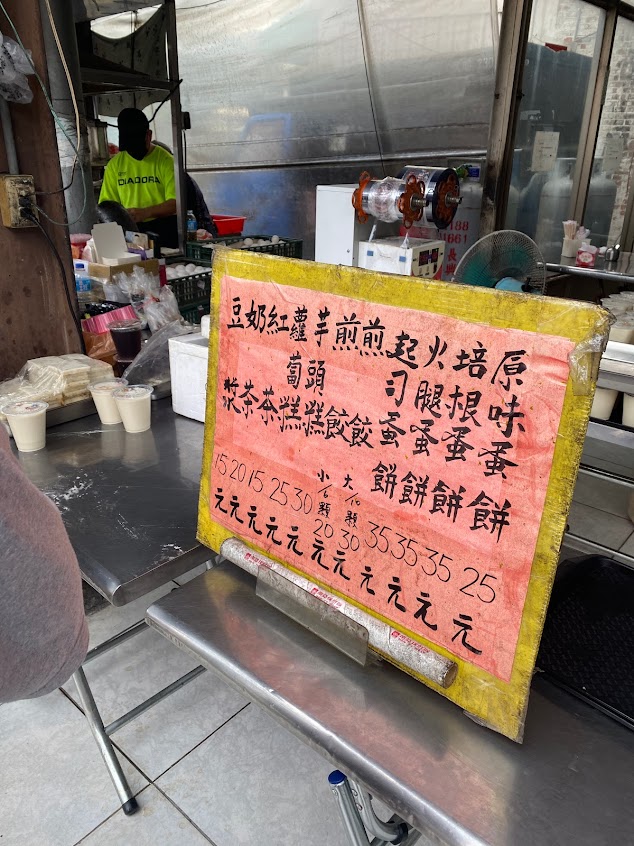 原味蛋餅25元
培根蛋餅35元
火腿蛋餅35元
起司蛋餅35元
煎餃大/10顆30元
煎餃小/6顆20元
芋頭糕30元
蘿蔔糕25元
紅茶15元
奶茶20元
豆漿15元
DIADORA